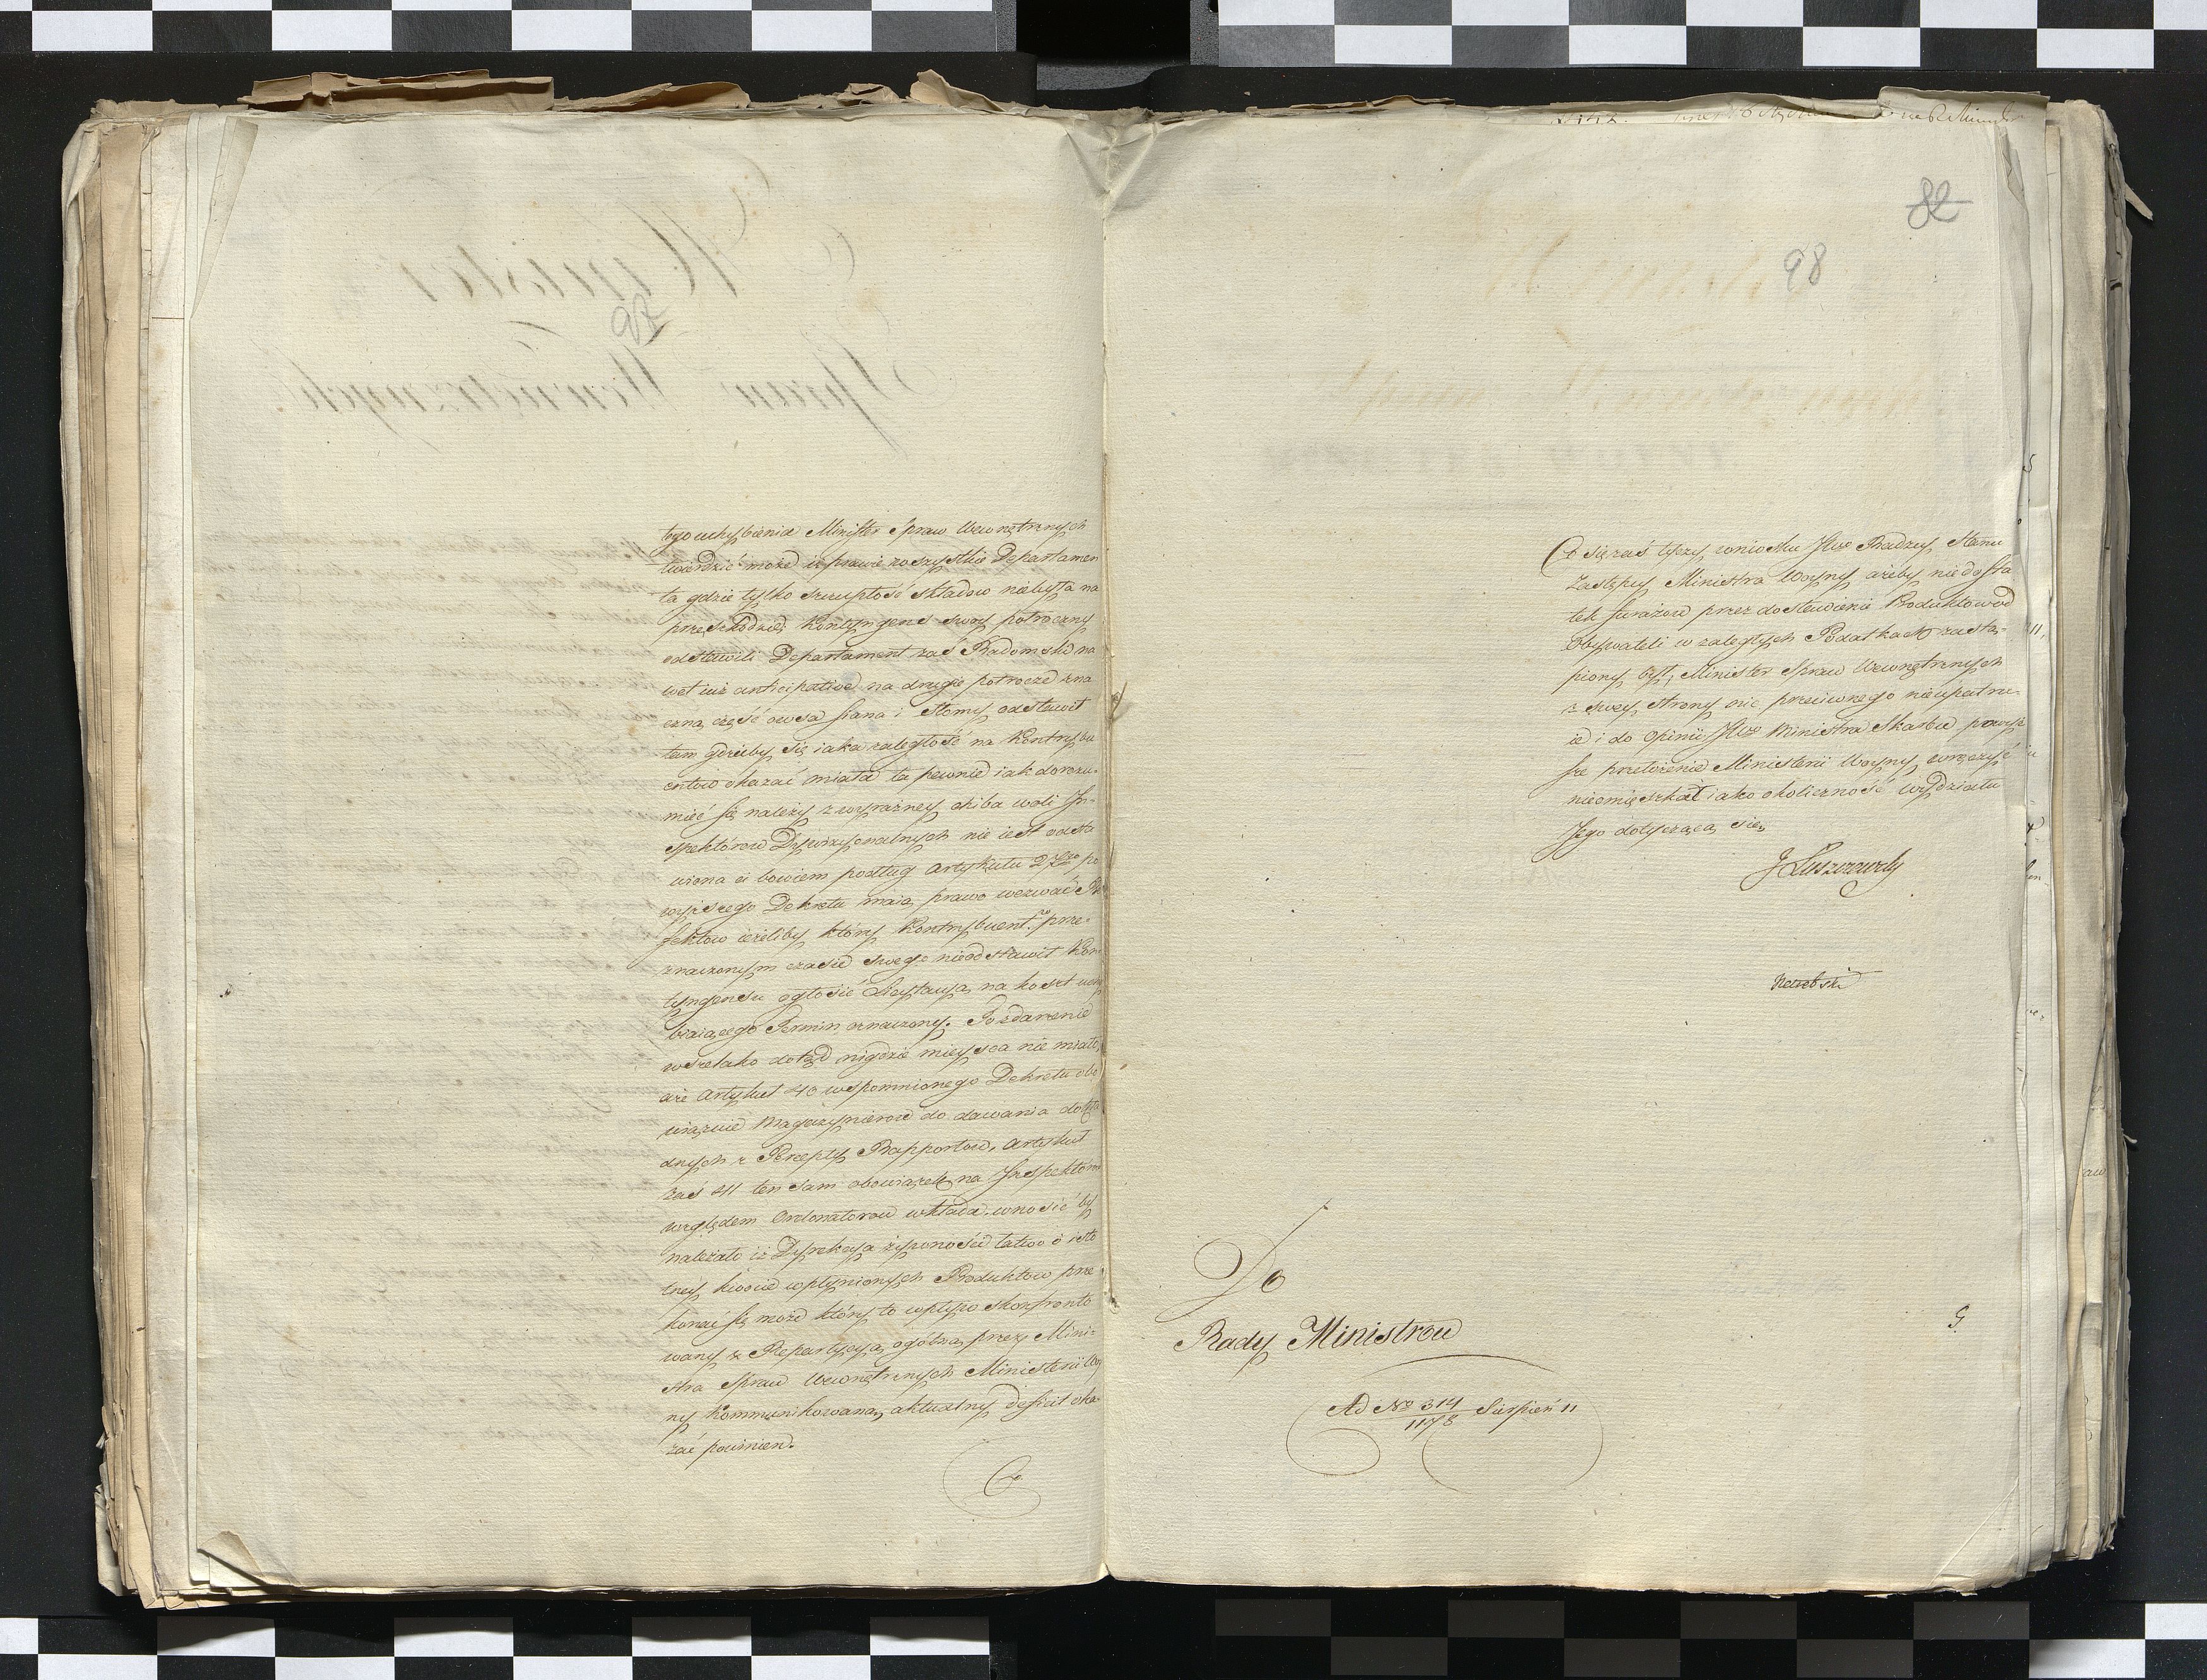 tego uchybienia Minister Spraw Wewnętrznych
twierdzić może iż prawie wszystkie Departamen
ta gdzie tylko szczupłość składow niebyła na
przeszkodzie, Kontyngens swoy pułroczny
odstawili Departament zaś Radomski na
wet iuż anticipative na drugie pułrocze zna
czną część owsa siana i słomy odstawił
tam gdzieby się iaka zaległość na Kontrybu
entow okazać miała ta pewnie iak dorozu-
mieć się należy z wyraźney chiba woli In-
spektórow Dywizyonalnych nie iest odsta
wiona ci bowiem podług Artykułu 27go po
wyższego Dekretu maią prawo wezwać Pre
fektow ieżeliby który Kontrybuent w prze-
znaczonym czasie swego nieodstawił Kon-
tyngensu ogłosić Licytacyą na koszt uchy
biaiącego Termin oznaczony. To zdarzenie
wszelako dotąd nigdzie mieysca nie miało,
aże Artykuł 40 wspomnionego Dekretu obo
wiązuie Magazynierow do dawania dokła
dnych z Percepty Rapportow, Artykuł
zaś 41 ten sam obowiązek na Inspektórow
względem Ordonatorow wkłada. wnosić by
należało iż Dyrekcya żywności łatwo o isto
tney kwocie wpłynionych Produktow prze
konać się może który to wpływ skonfronto
wany z Repartycyą ogólną przez Mini-
stra Spraw Wewnętrznych Ministerii Woy
ny kommunikowaną aktualny deficit oka-
zać powinien.
Co
82
98
Co się zaś tyczy wniosku JWo Radzcy Stanu
Zastępcy Ministra Woyny ażeby niedosta
tek furażow przez dostawienie Produktow od
Obywateli w zaległych Podatkach zastą-
piony był, Minister Spraw Wewnętrznych
z swey strony nic przeciwnego nieupatru-
ie i do Opinii JWo Ministra Skarbu powyż
sze przełożenie Ministerii Woyny wręczyć
nieomieszkał iako okoliczność wydziału
Jego dotyczącą się,
J Łuszczewsky
Do
Rady Ministrow
G.
Ad No 314
1178 Sierpień 11